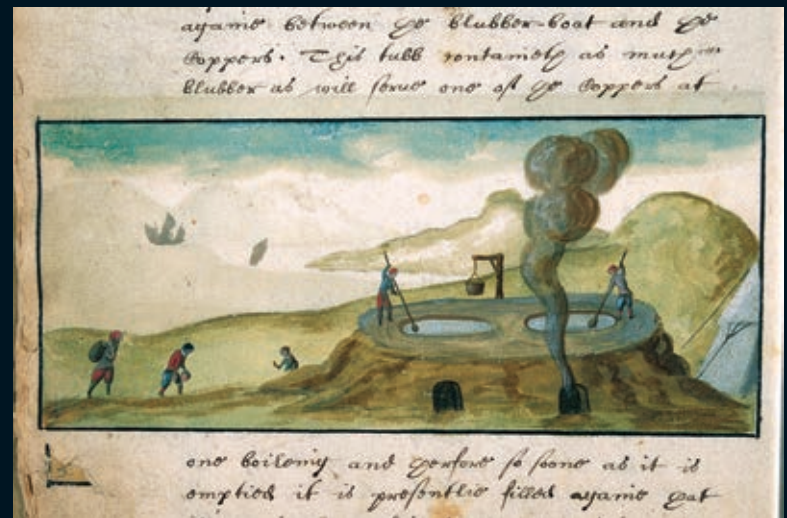 againe between ye blubber-boat and ye
Coppers. This tubb containeth as much
blubber as will serve one of ye Coppers at
one boileing and therfore so soone as it is
emptied it is presentlie filled againe that